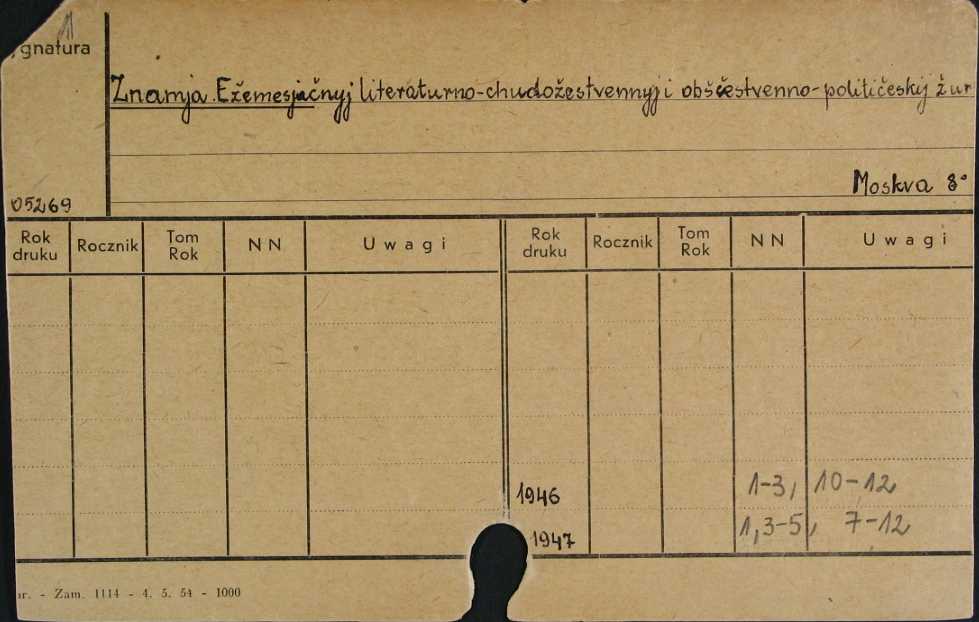 1
gnatura
Znamja. Ežemesjačnyj literaturno-chudožestvennyj i obščestvenno-političeskij žur
Moskva 8°
05269
Rok druku Rocznik Tom Rok NN Uwagi Rok druku Rocznik Tom Rok NN Uwagi
1946 1-3, 10-12
1947 1,3-5, 7-12
ar. - Zam. 1114 - 4. 5. 54 - 1000